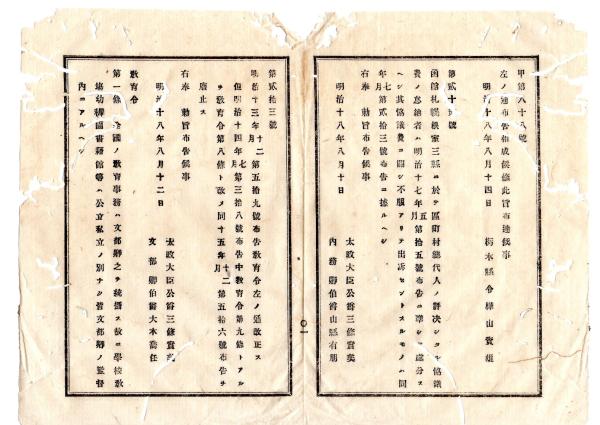 甲第八十八號
左ノ通布告相成候條此旨布達候事
明治十八年八月十四日
栃木縣令樺山資雄
第貳十號
函館札幌根室三縣ニ於テ區町村總代人ノ評決シタル協議
費ノ怠納者ハ明治十七年五月第拾五號布告ニ準シ處分ス
ヘシ其協議費ニ關シ不服アリテ出訴セントスルモノハ同
年七月第貳拾三號布告ニ據ルヘシ
右奉 勅旨布告候事
明治十八年八月十日
太政大臣公爵三條實美
內務卿伯爵山縣有朋
〇一
第貳拾三號
明治十三年十二月第五拾九號布告敎育令左ノ通改正ス
但明治十四年七月第三拾八號布告中敎育令第九條トアル
ヲ敎育令第八條ト改メ同十五年十二月第五拾六號布告ヲ
廢止ス
右奉 勅旨布告候事
明治十八年八月十二日
太政大臣公爵三條實美
文部卿伯爵大木喬任
敎育令
第一條 全國ノ敎育事務ハ文部卿之ヲ統攝ス故ニ學校敎
塲幼稚園書籍館等ハ公立私立ノ別ナク皆文部卿ノ監督
內ニアルヘシ